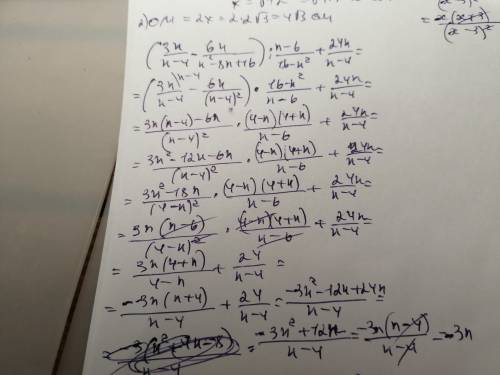 2) OM = 2x = 2·2√3 = 4√3 см
= x(x+3)/(x-3)²
(3n/(n-4) - 6n/(n²-8n+16)) : (n-6)/(16-n²) + 24n/(n-4) =
= (3n^(n-4)/(n-4) - 6n/(n-4)²) · (16-n²)/(n-6) + 24n/(n-4) =
= (3n(n-4)-6n)/(n-4)² · (4-n)(4+n)/(n-6) + 24n/(n-4) =
= (3n²-12n-6n)/(n-4)² · (4-n)(4+n)/(n-6) + 24n/(n-4) =
= (3n²-18n)/(4-n)² · (4-n)(4+n)/(n-6) + 24n/(n-4) =
= 3n(n-6)/(4-n)² · (4-n)(4+n)/(n-6) + 24n/(n-4) =
= 3n(4+n)/(4-n) + 24/(n-4) =
= -3n(n+4)/(n-4) + 24/(n-4) = (-3n²-12n+24n)/(n-4) =
= (-3n²+12n)/(n-4) = -3n(n-4)/(n-4) = -3n